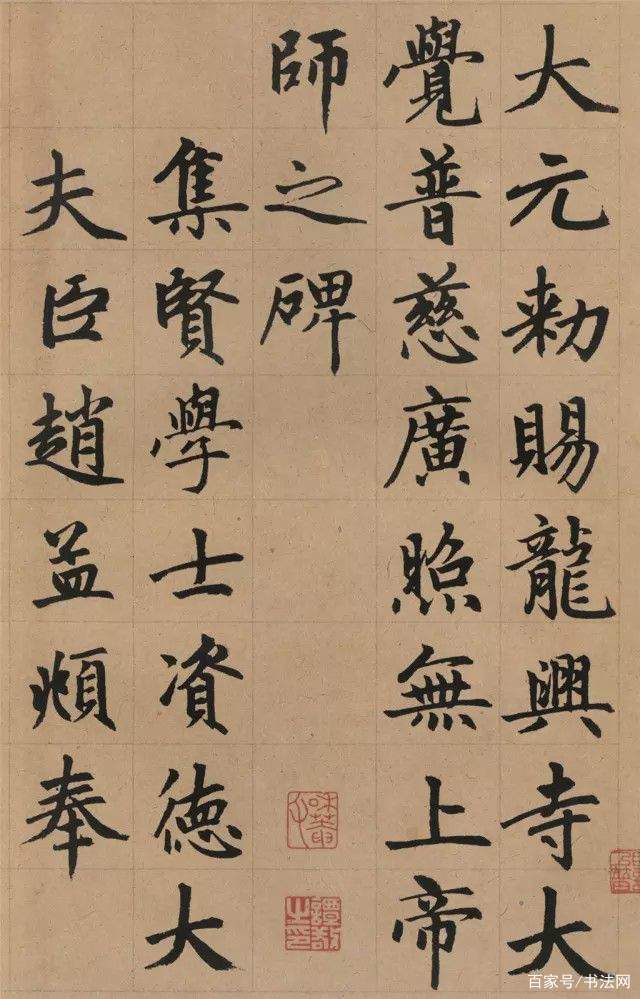 大元勑賜龍興寺大
覺普慈廣照無上帝
師之碑
集賢學士資德大
夫臣趙孟頫奉
百家号/书法网